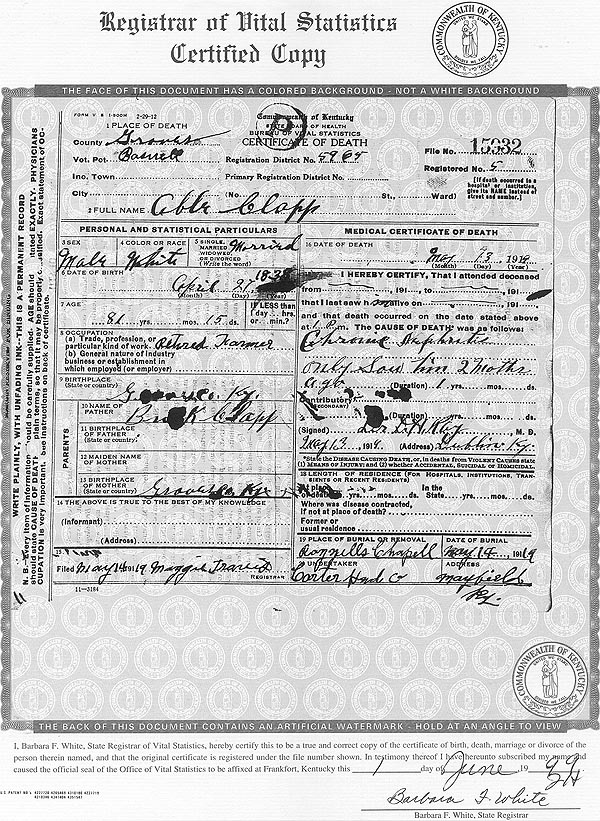 Registrar of Vital Statistics
Certified Copy
COMMONWEALTH OF KENTUCKY
UNITED WE STAND
DIVIDED WE FALL
THE FACE OF THIS DOCUMENT HAS A COLORED BACKGROUND - NOT A WHITE BACKGROUND
FORM V S 2-29-12
Commonwealth of Kentucky
STATE BOARD OF HEALTH
BUREAU OF VITAL STATISTICS
CERTIFICATE OF DEATH
1 PLACE OF DEATH
County Graves
Vot. Pct.
Inc. Town
City
Registration District No.
Primary Registration District No.
(No. St., Ward)
File No. 15932
Registered No. 5
[If death occurred in a
hospital or institution,
give its NAME instead of
street and number.]
2 FULL NAME Able Clapp
PERSONAL AND STATISTICAL PARTICULARS
3 SEX
Male
4 COLOR OR RACE
White
5 SINGLE,
MARRIED
WIDOWED,
OR DIVORCED
(Write the word)
Married
6 DATE OF BIRTH
April 27 1838
(Month) (Day) (Year)
7 AGE
81 yrs. mos. 15 ds.
IF LESS than
1 day... hrs.
or... min.?
8 OCCUPATION
(a) Trade, profession, or
particular kind of work Retired Farmer
(b) General nature of industry
business or establishment in
which employed (or employer)
9 BIRTHPLACE
(State or country)
Graves Co. Ky.
PARENTS
10 NAME OF
FATHER
Clapp
11 BIRTHPLACE
OF FATHER
(State or country)
12 MAIDEN NAME
OF MOTHER
13 BIRTHPLACE
OF MOTHER
(State or country)
Graves Co. Ky
14 THE ABOVE IS TRUE TO THE BEST OF MY KNOWLEDGE
(Informant)
(Address)
15
Filed May 14 1919 Maggie Travis
REGISTRAR
11-3184
MEDICAL CERTIFICATE OF DEATH
16 DATE OF DEATH
May 13, 1919
(Month) (Day) (Year)
I HEREBY CERTIFY, That I attended deceased
from , 191 , to , 191 ,
that I last saw h alive on , 191 ,
and that death occurred on the date stated above
at 1 P. m. The CAUSE OF DEATH was as follows:
Chronic Nephritis
only saw him 2 months
ago
(Duration) 1 yrs. mos. ds.
Contributory
(SECONDARY)
(Duration) yrs. mos. ds.
(Signed) M. D.
May 13, 1919 (Address) Dublin Ky.
*State the DISEASE CAUSING DEATH, or, in deaths from VIOLENT CAUSES state
(1) MEANS OF INJURY; and (2) whether ACCIDENTAL, SUICIDAL OR HOMICIDAL.
18 LENGTH OF RESIDENCE (FOR HOSPITALS, INSTITUTIONS, TRANSIENTS OR RECENT RESIDENTS)
At place
of death yrs. mos. ds.
In the
State, yrs. mos. ds.
Where was disease contracted,
if not at place of death?
Former or
usual residence
19 PLACE OF BURIAL OR REMOVAL
Chapell
DATE OF BURIAL
May 14, 1919
20 UNDERTAKER
Carter Hdw Co
ADDRESS
Mayfield
Ky.
WRITE PLAINLY, WITH UNFADING INK--THIS IS A PERMANENT RECORD
COMMONWEALTH OF KENTUCKY
THE BACK OF THIS DOCUMENT CONTAINS AN ARTIFICIAL WATERMARK - HOLD AT AN ANGLE TO VIEW
I, Barbara F. White, State Registrar of Vital Statistics, hereby certify this to be a true and correct copy of the certificate of birth, death, marriage or divorce of the
person therein named, and that the original certificate is registered under the file number shown. In testimony thereof I have hereunto subscribed my name and
caused the official seal of the Office of Vital Statistics to be affixed at Frankfort, Kentucky this 1 day of June, 19 99
Barbara F. White
Barbara F. White, State Registrar